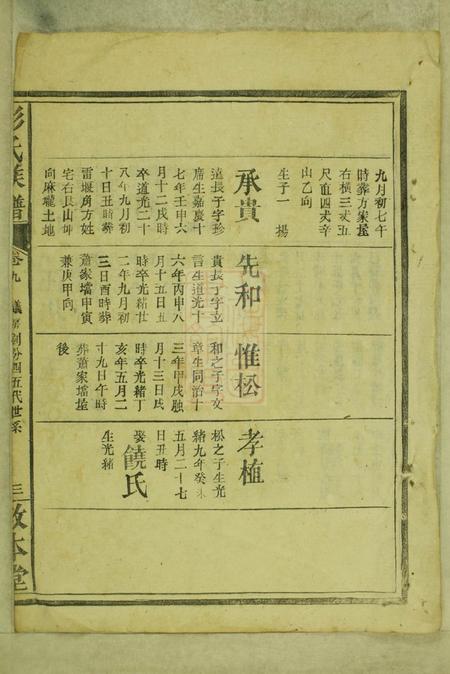 九月初七午
時葬方家垅
右橫三丈五
尺直四丈辛
山乙向
生子一　楊
承貴
遠長子字珍
席生嘉慶十
七年壬申六
月十二戌時
卒道光二十
八年九月初
十日丑時葬
雷堰房方姓
宅右艮山坤
向麻瓏土地
先和
貴長子字立
言生道光十
六年丙申八
月十五日丑
時卒光緒廿
二年九月初
三日酉時葬
蕭家壋甲寅
兼庚甲向
惟松
和之子字文
章生同治十
三年甲戌
月十三日戌
時卒光緒丁
亥年五月二
十九日午時
葬蕭家壋垅
後
孝植
松之子生光
緒九年癸未
五月二十七
日丑時
娶饒氏
生光緒
彭氏族譜
卷九
分四五代世系
三
敦本堂